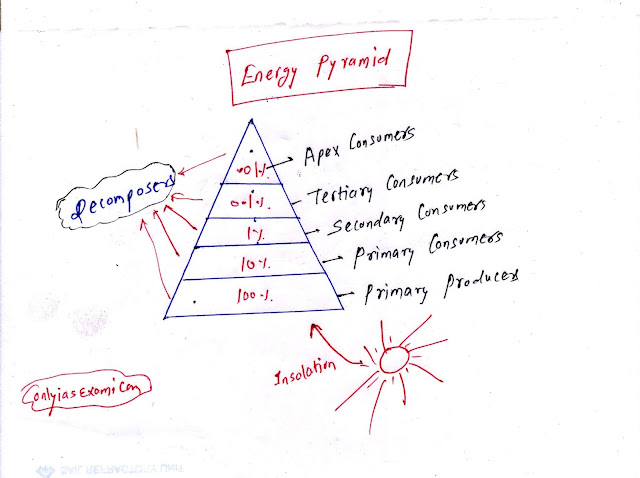 Energy Pyramid
Apex Consumers
.01%
Decomposers
Tertiary Consumers
0.1%
Secondary Consumers
1%
Primary Consumers
10%
Primary Producers
100%
Insolation
onlyiasexami.com
SAIL REFRACTORY UNIT